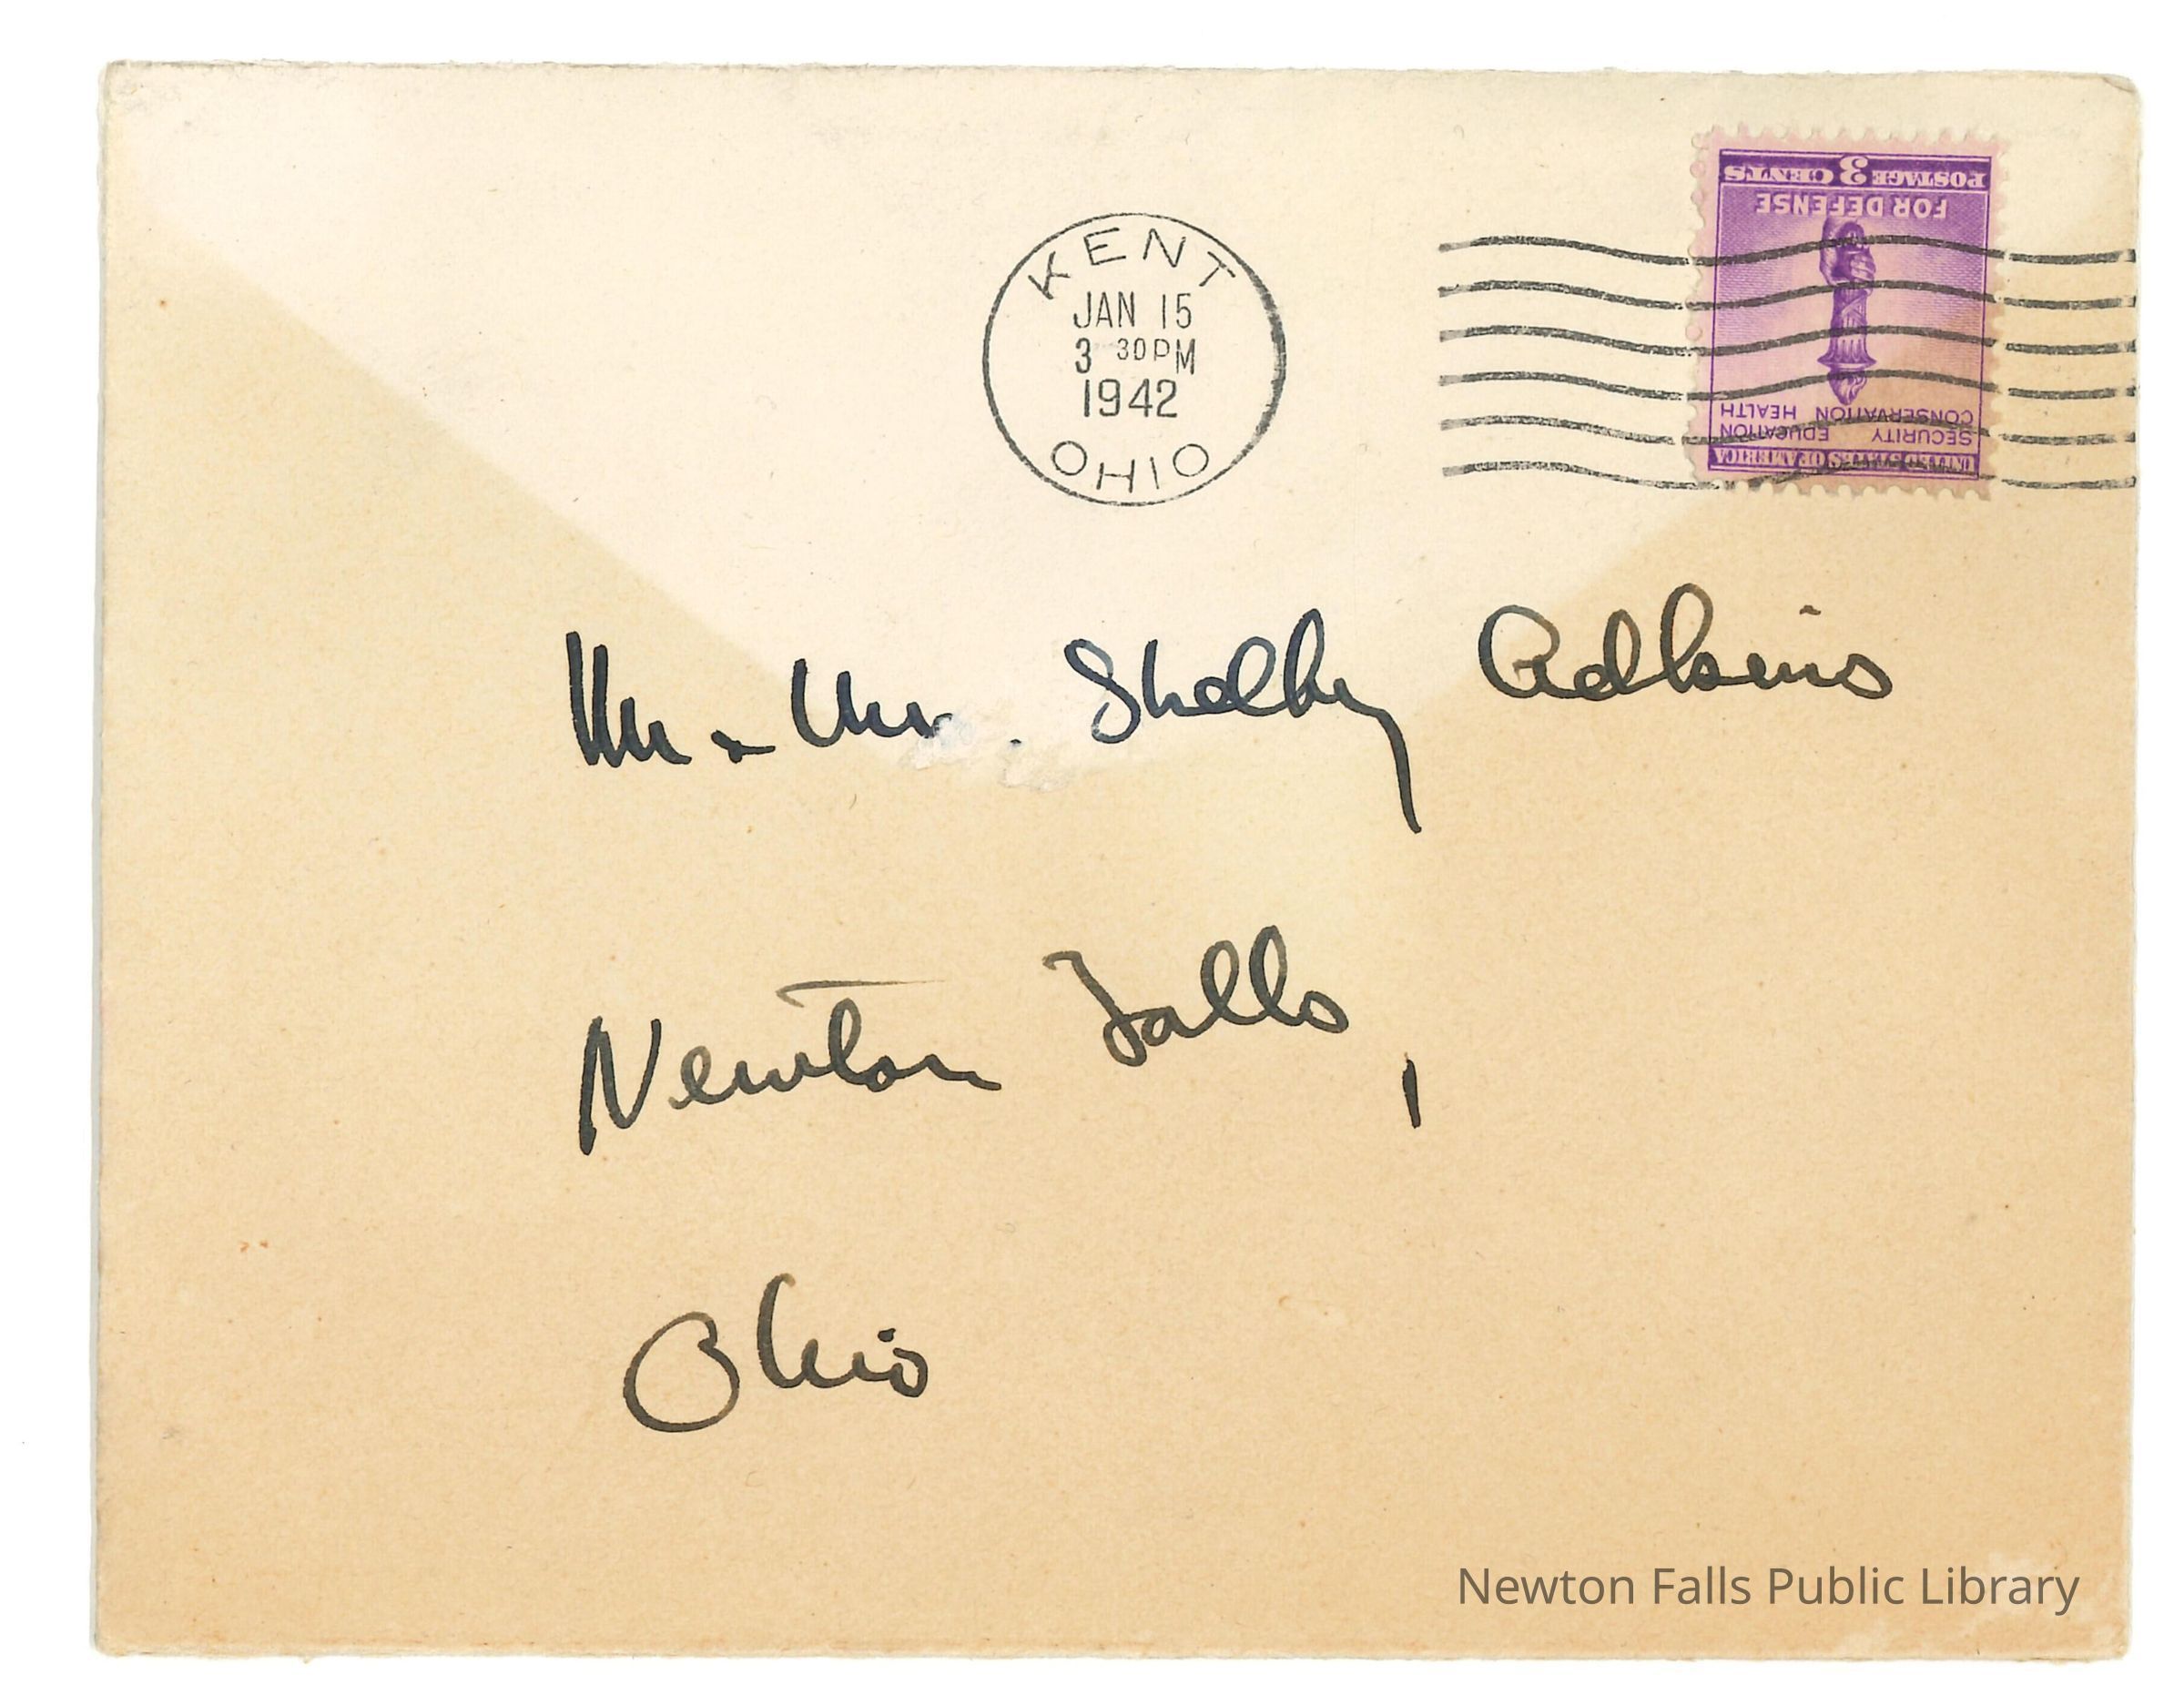 KENT
JAN 15
3 30PM
1942
OHIO
POSTAGE 3 CENTS
FOR DEFENSE
SECURITY EDUCATION
CONSERVATION HEALTH
UNITED STATES OF AMERICA
Mr & Mrs. Shelby Adkins
Newton Falls,
Ohio
Newton Falls Public Library